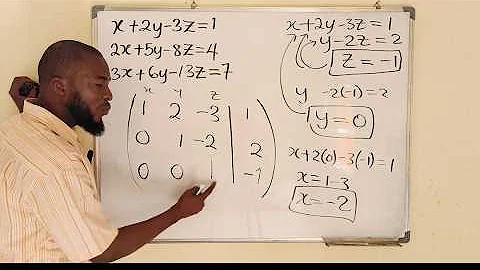 x+2y-3z=1
2x+5y-8z=4
3x+6y-13z=7
x y z
1 2 -3 | 1
0 1 -2 | 2
0 0 1 | -1
x+2y-3z=1
y-2z=2
z=-1
y -2(-1)=2
y=0
x+2(0)-3(-1)=1
x=1-3
x=-2